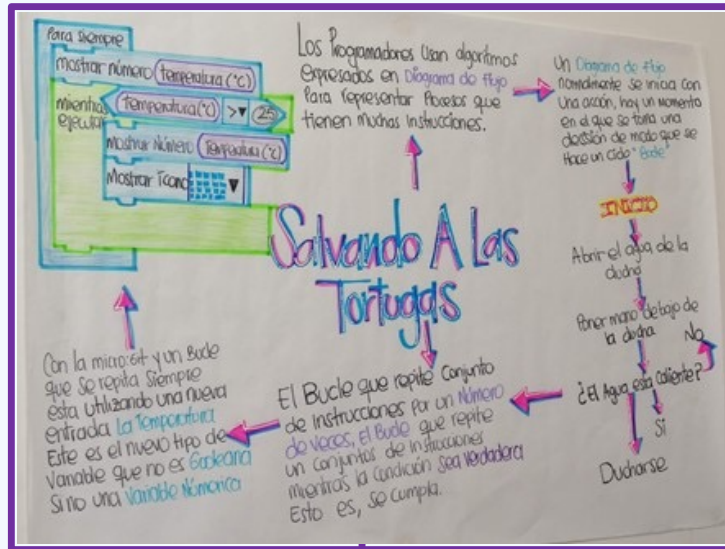 Para Siempre
mostrar número (temperatura (°C)
mientras (temperatura (°C) > ▼ 25
ejecutar
mostrar Número (Temperatura (°C)
Mostrar Icono ▼
Los Programadores Usan algoritmos
expresados en Diagrama de Flujo
Para representar Procesos que
tienen muchas instrucciones.
Un Diagrama de flujo
normalmente se inicia con
una acción, hay un momento
en el que se toma una
decisión de modo que se
Hace un ciclo "Bucle"
INICIO
Abrir el agua de la
ducha
Poner mano debajo de
la ducha
No
¿El Agua esta Caliente?
Si
Ducharse
Salvando A Las
Tortugas
El Bucle que repite Conjunto
de instrucciones Por un Número
de veces, el Bucle que repite
un conjuntos de Instrucciones
mientras la Condición Sea Verdadera
Esto es, se Cumpla.
Con la micro:bit y un Bucle
que se repita Siempre
esta utilizando una nueva
entrada La Temperatura
Este es el nuevo tipo de
Variable que no es Booleana
Si no una Variable Númerica